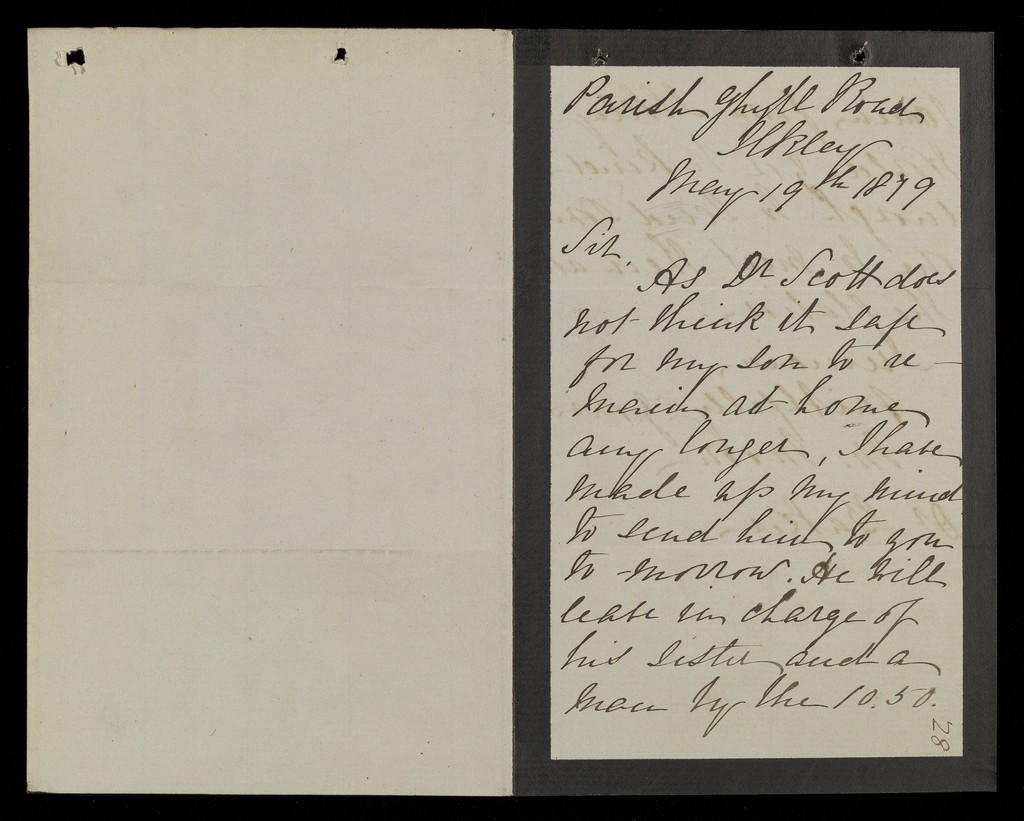 Parish Ghyll Road
Ilkley
May 19th 1879
Sir,
As Dr Scott does
not think it safe
for my son to re-
main at home
any longer, I have
made up my mind
to send him to you
to-morrow. He will
leave in charge of
his sister and a
man by the 10.50.
28